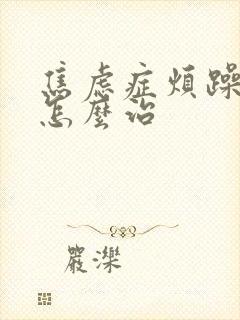 焦虑症煩躁
怎麼治
嚴濼